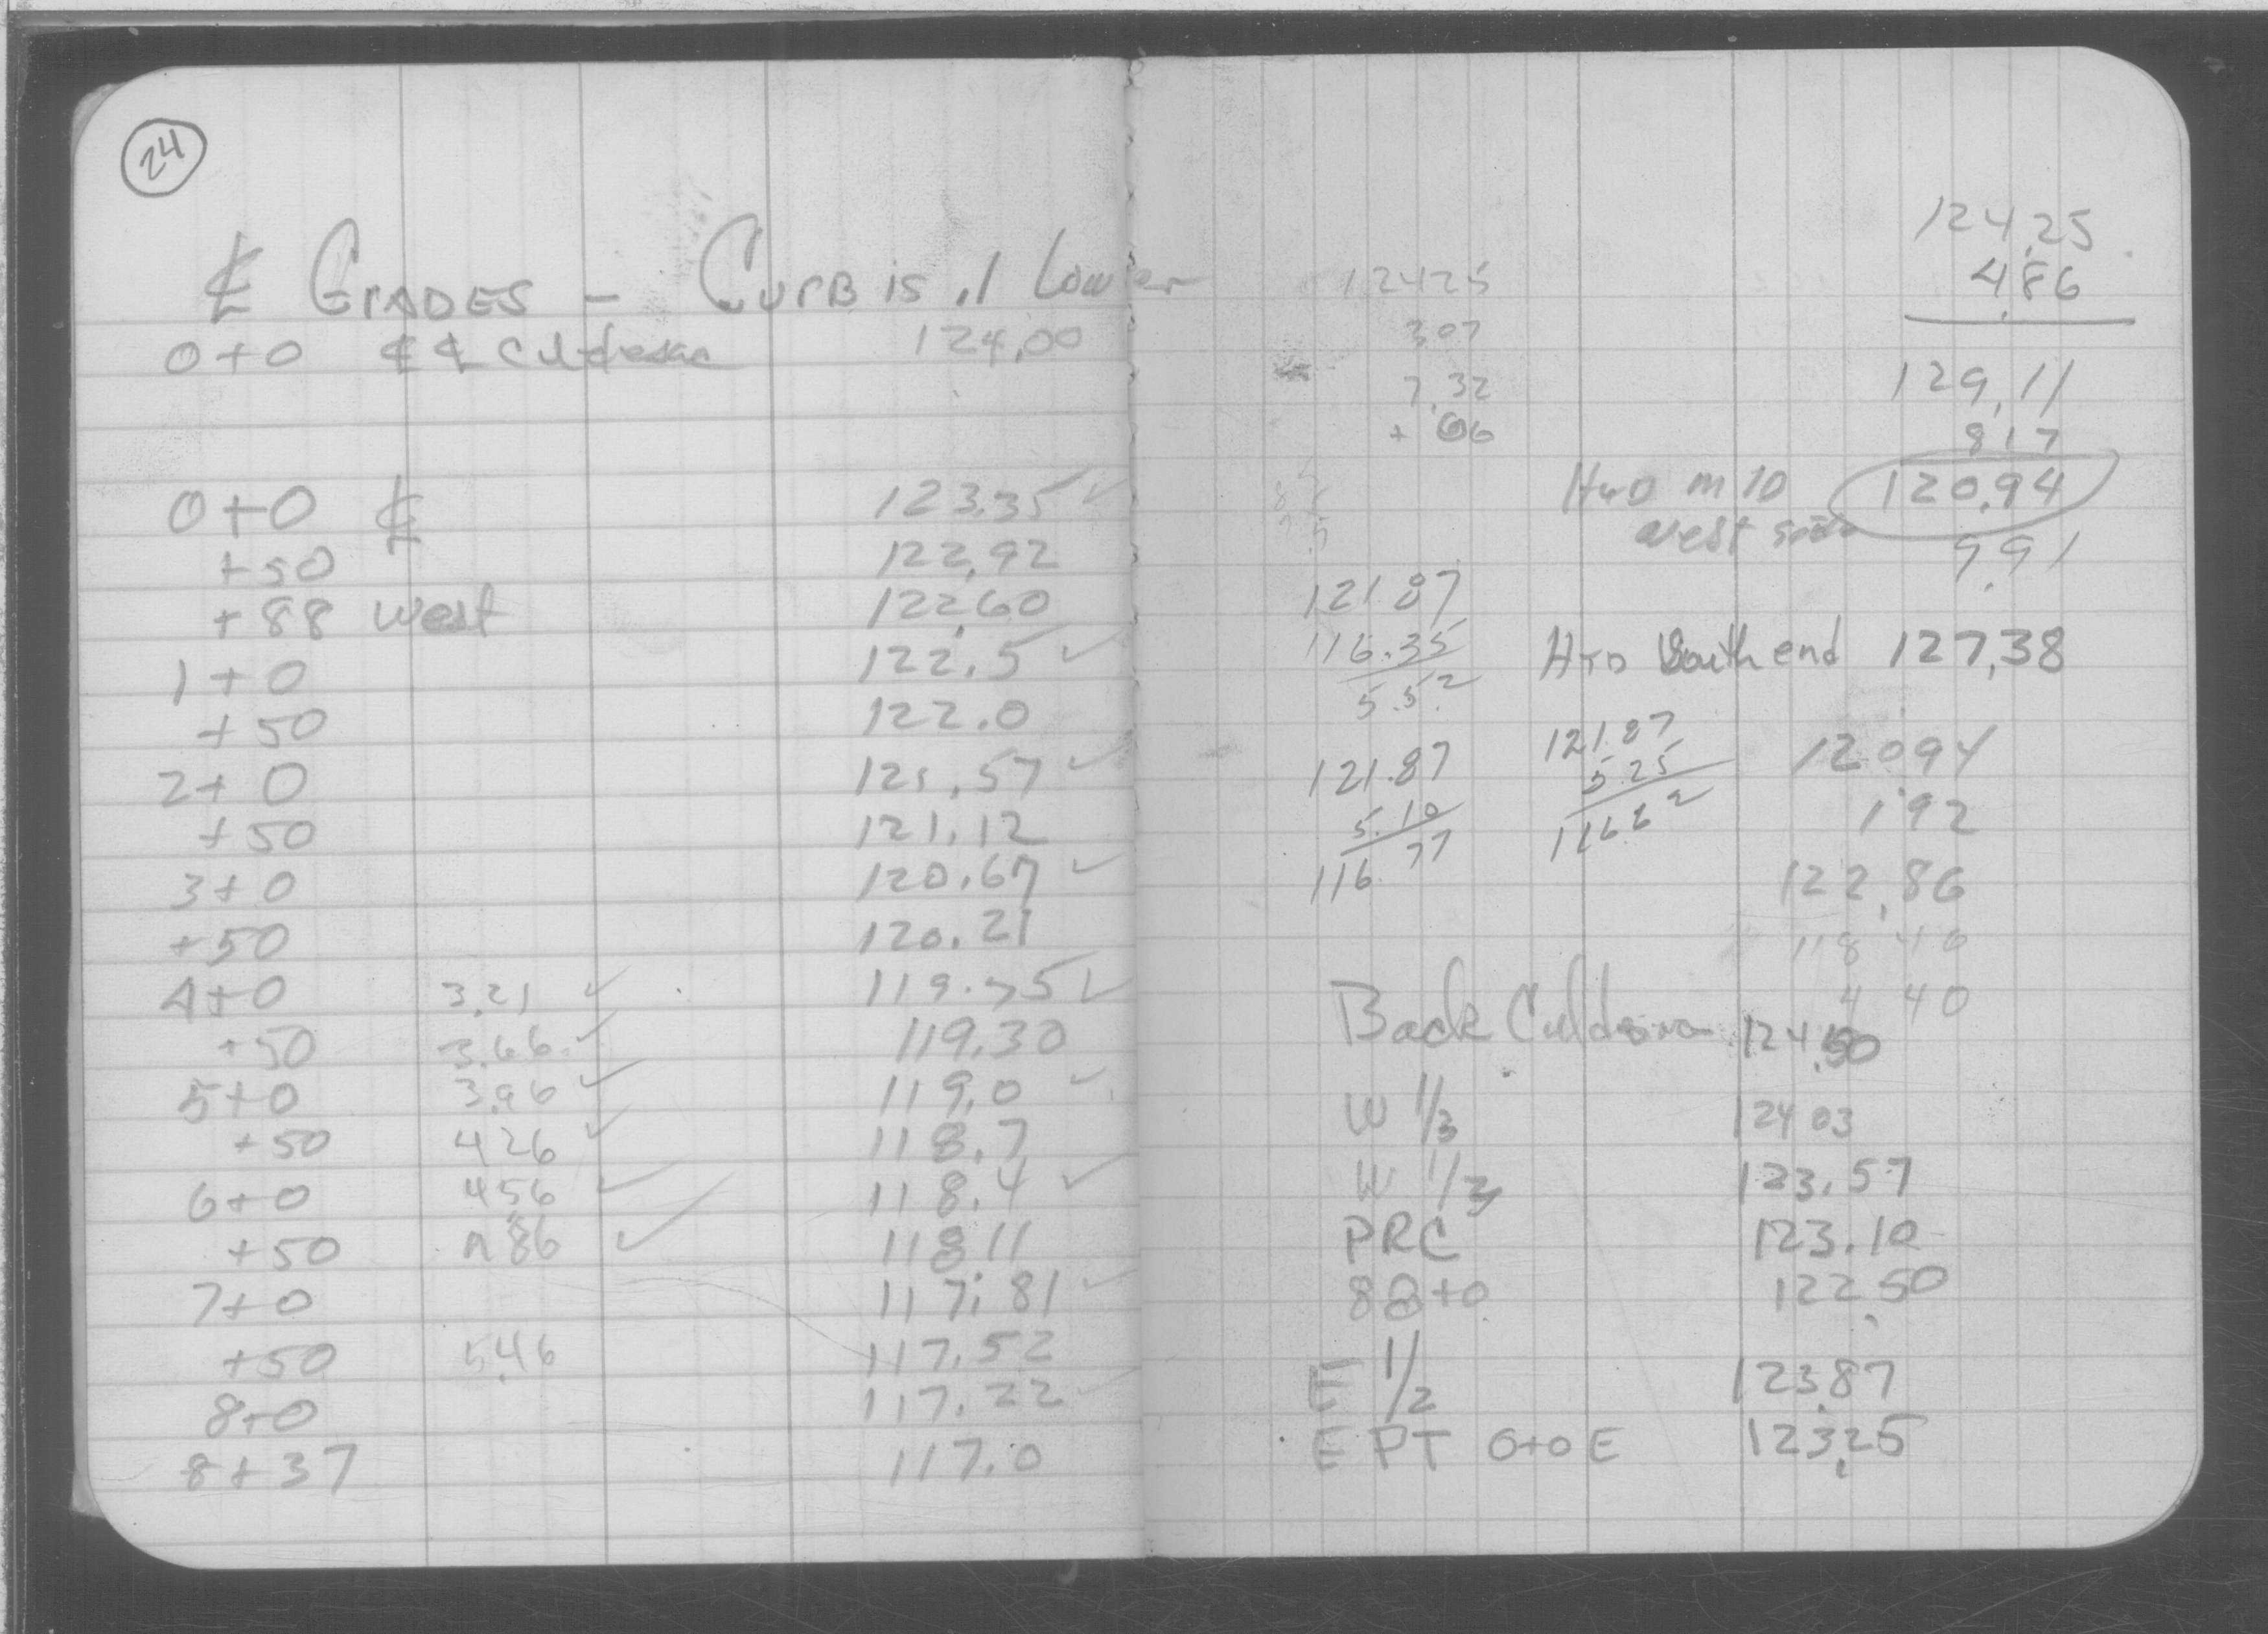 24
℄ GRADES - CURB is .1 Lower
0+0 ℄ ℄ Culdesac 124.00
0+0 ℄ 123.35 ✓
+50 122.92
+88 west 122.60
1+0 122.5 ✓
+50 122.0
2+0 121.57 ✓
+50 121.12
3+0 120.67 ✓
+50 120.21
4+0 3.21 ✓ 119.75 ✓
+50 3.66 ✓ 119.30
5+0 3.96 ✓ 119.0 ✓
+50 4.26 ✓ 118.7
6+0 4.56 ✓ 118.4 ✓
+50 4.86 ✓ 118.11
7+0 117.81 ✓
+50 5.46 117.52
8+0 117.22 ✓
8+37 117.0
124.25
4.86
129.11
8.17
120.94
9.91
12425
307
7.32
+ 66
west side
121.87
116.35
5.52
South end 127.38
121.87
5.10
116.77
121.87
5.25
116.62
120.94
1.92
122.86
118 40
4 40
Back Culdesac 124.50
W 1/3 124.03
W 1/3 123.57
PRC 123.10
88+0 122.50
E 1/2 123.87
E PT 0+0 E 123.25